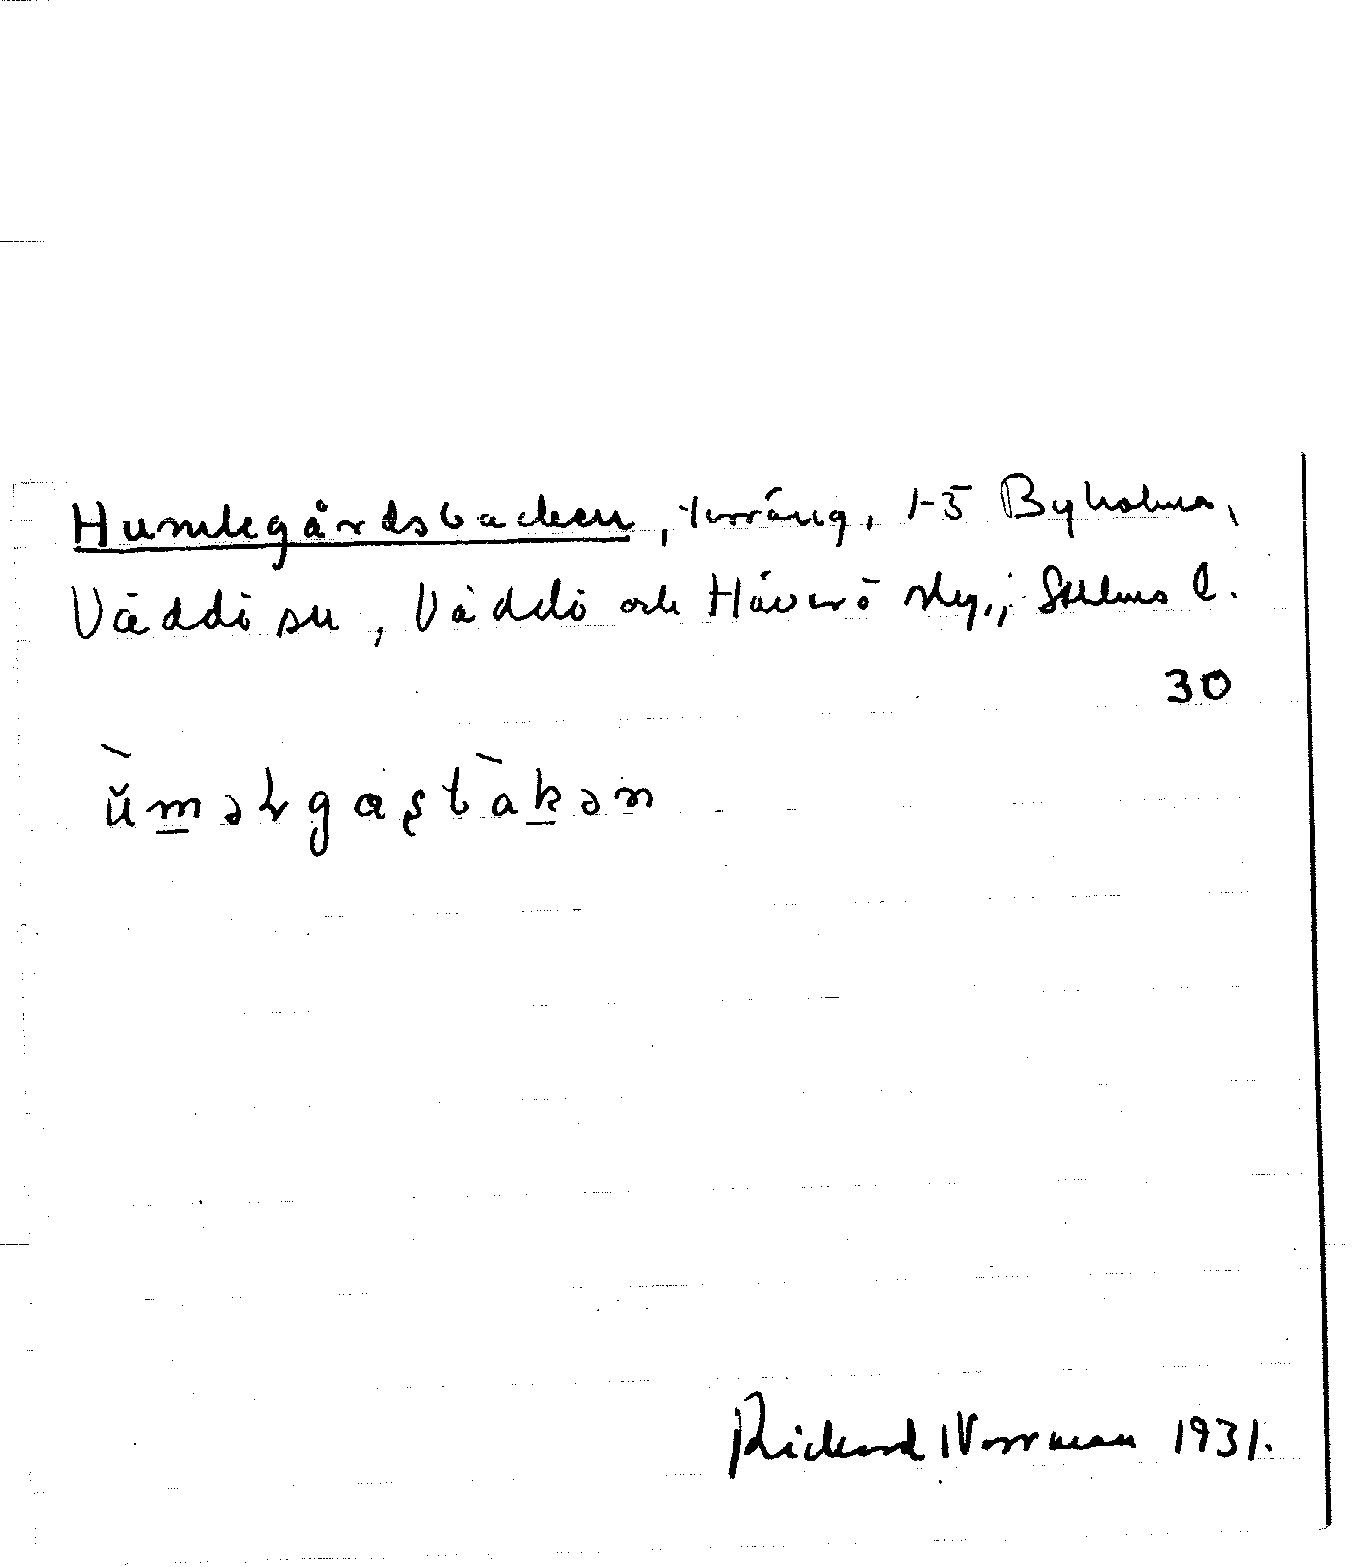 Humlegårdsbacken, terräng, 1-5 Byholma,
Väddö sn, Väddö och Häverö skg., Sthlms l.
30
ùməlgasbàkən
Rickard Norrman 1931.